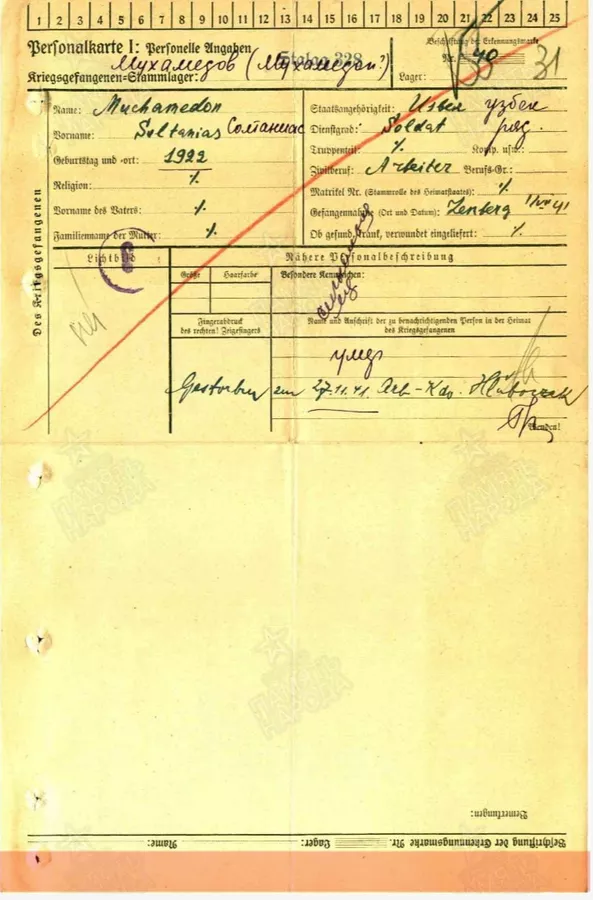 1 2 3 4 5 6 7 8 9 10 11 12 13 14 15 16 17 18 19 20 21 22 23 24 25
Personalkarte I: Personelle Angaben
Beschriftung der Erkennungsmarke
Мухамедов (Мухамедон?)
Stalag 328
Nr.
31
Kriegsgefangenen-Stammlager:
Lager:
Des Kriegsgefangenen
Name: Muchamedon
Staatsangehörigkeit: Usbek узбек
Vorname: Soltanias Солтаниас
Dienstgrad: Soldat ряд.
Geburtstag und -ort: 1922
Truppenteil: % Komp. usw.:
Religion: %
Zivilberuf: Arbeiter Berufs-Gr.:
Matrikel Nr. (Stammrolle des Heimatstaates): %
Vorname des Vaters: %
Gefangennahme (Ort und Datum): Lemberg
Familienname der Mutter: %
Ob gesund, krank, verwundet eingeliefert: %
Lichtbild
Nähere Personalbeschreibung
Größe Haarfarbe Besondere Kennzeichen:
Fingerabdruck
des rechten! Zeigefingers
Name und Anschrift der zu benachrichtigenden Person in der Heimat
des Kriegsgefangenen
умер
Gestorben am 27.11.41 Arb-Kdo.
Wenden!
ПАМЯТЬ НАРОДА
ПАМЯТЬ НАРОДА
ПАМЯТЬ НАРОДА
Bemerkungen:
Beschriftung der Erkennungsmarke Nr. Lager: Name: